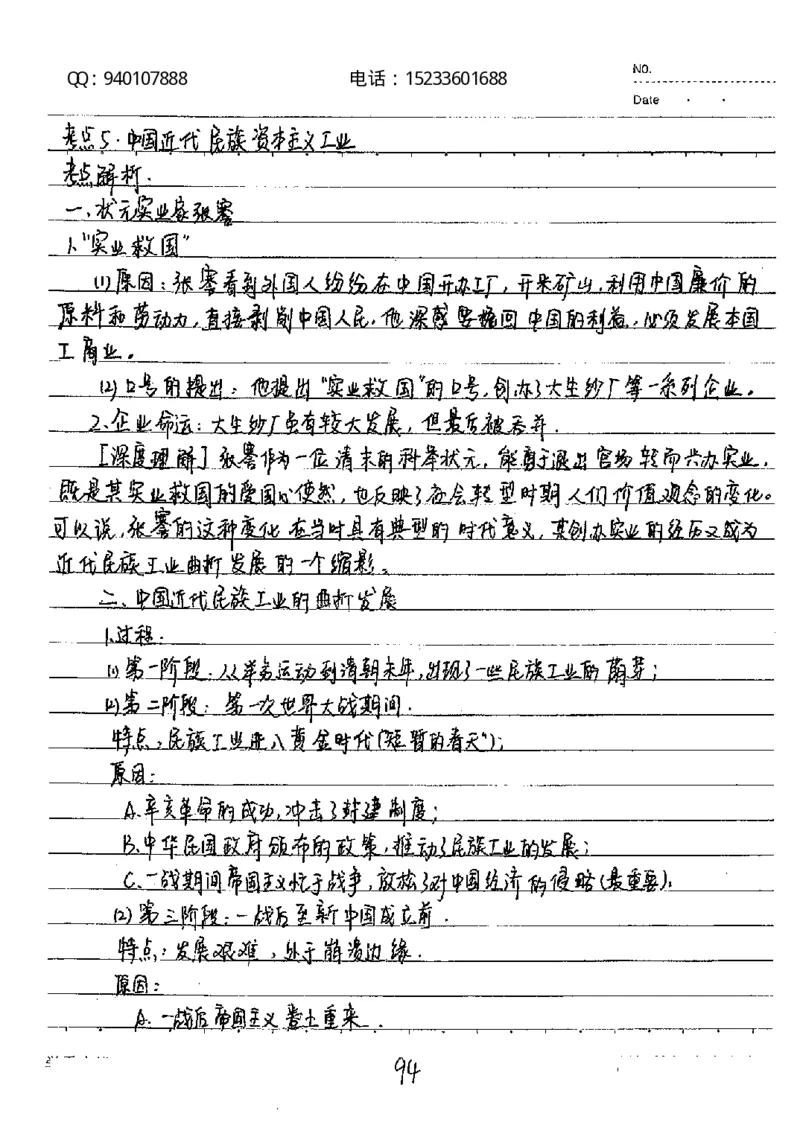 QQ：940107888 电话：15233601688 NO.
Date
考点5.中国近代民族资本主义工业
考点解析.
一、状元实业家张謇
1.“实业救国”
(1)原因：张謇看到外国人纷纷在中国开办工厂，开采矿山，利用中国廉价的
原料和劳动力，直接剥削中国人民，他深感要挽回中国的利益，必须发展本国
工商业。
(2)口号的提出：他提出“实业救国”的口号，创办了大生纱厂等一系列企业。
2.企业命运：大生纱厂虽有较大发展，但最后被吞并.
[深度理解]张謇作为一位清末的科举状元，能勇于退出官场转而兴办实业，
既是其实业救国的爱国心使然，也反映了社会转型时期人们价值观念的变化。
可以说，张謇的这种变化在当时具有典型的时代意义，其创办实业的经历又成为
近代民族工业曲折发展的一个缩影。
二、中国近代民族工业的曲折发展
1.过程：
(1)第一阶段：从洋务运动到清朝末年，出现了一些民族工业的萌芽；
(2)第二阶段：第一次世界大战期间.
特点：民族工业进入黄金时代(“短暂的春天”)；
原因：
A.辛亥革命的成功，冲击了封建制度；
B.中华民国政府颁布的政策，推动了民族工业的发展；
C.一战期间帝国主义忙于战争，放松了对中国经济的侵略(最重要).
(2)第三阶段：一战后至新中国成立前.
特点：发展艰难，处于崩溃边缘.
原因：
A.一战后帝国主义卷土重来.
94